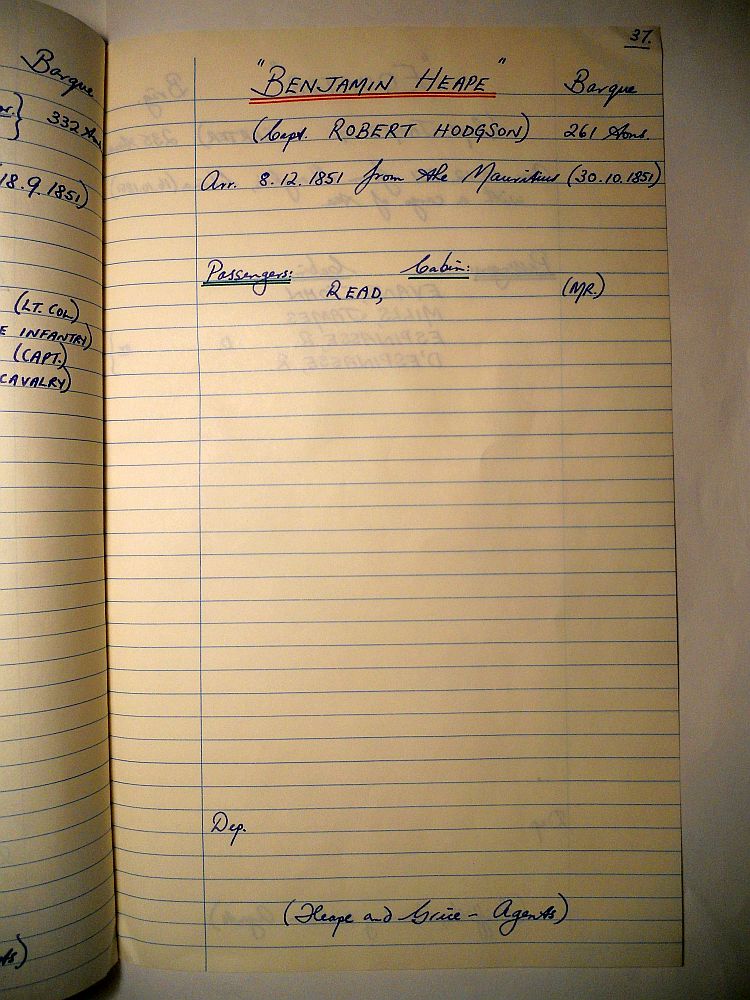 Barque
332 tons
18.9.1851)
(LT. COL)
E INFANTRY)
(CAPT.)
CAVALRY)
37.
"BENJAMIN HEAPE" Barque
(Capt. ROBERT HODGSON) 261 tons.
Arr. 8.12.1851 from the Mauritius (30.10.1851)
Passengers: Cabin:
READ, (MR.)
Dep.
(Heape and Grice - Agents)